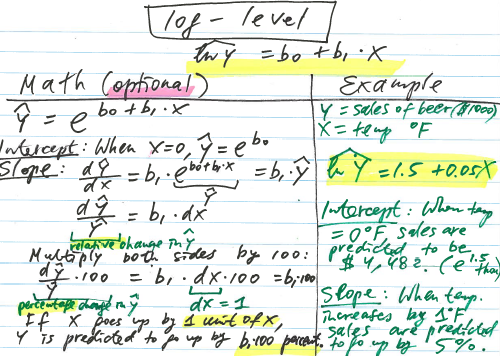 log - level
ln Ŷ = b₀ + b₁ · X
Math (optional)
Ŷ = e^(b₀ + b₁ · X)
Intercept: When X=0, Ŷ = e^(b₀)
Slope: dŶ/dX = b₁ · e^(b₀+b₁·X) = b₁ · Ŷ
Ŷ
dŶ/Ŷ = b₁ · dX
relative change in Ŷ
Multiply both sides by 100:
dŶ/Ŷ · 100 = b₁ · dX · 100 = b₁·100
percentage change in Ŷ dX = 1
If X goes up by 1 unit of X,
Y is predicted to go up by b₁·100 percent.
Example
Y = sales of beer ($1000)
X = temp °F
ln Ŷ = 1.5 + 0.05X
Intercept: When temp
= 0°F sales are
predicted to be
$ 4,482. (e^1.5
Slope: When temp.
increases by 1°F
sales are predicted
to go up by 5%.